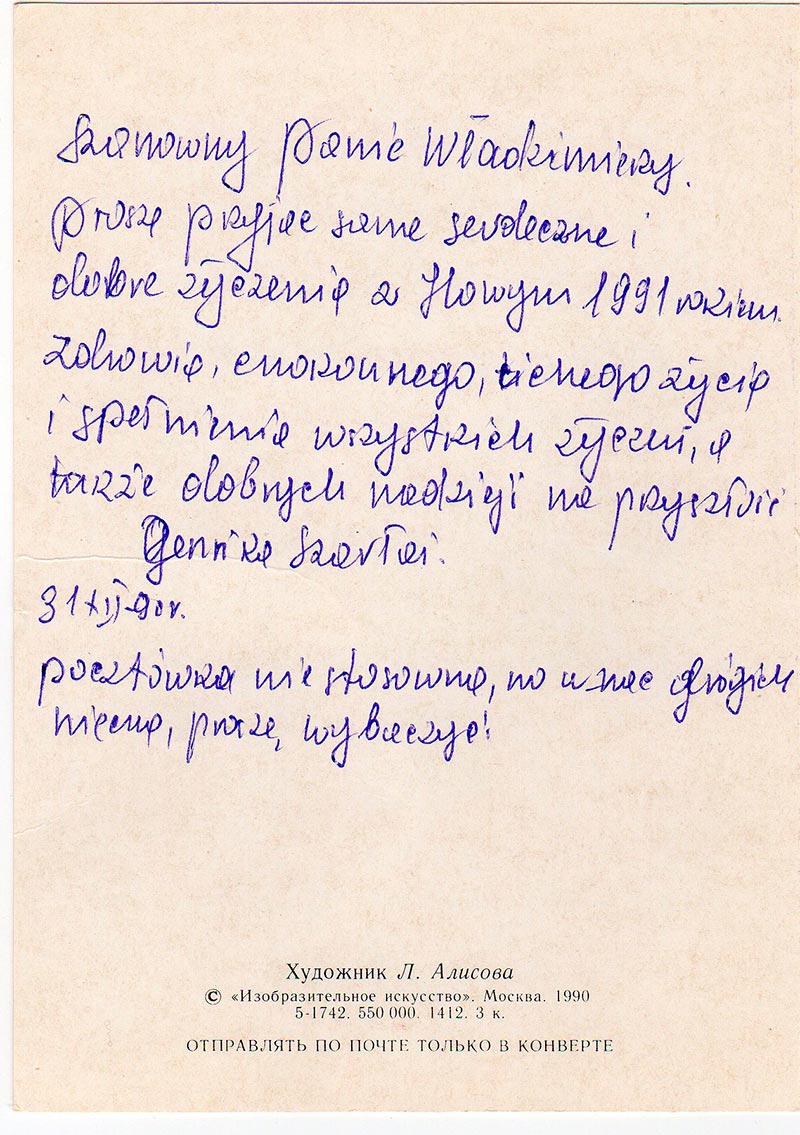 Szanowny Panie Włodzimierzy.
Prosze przyjac same serdeczne i
dobre zyczenia z Nowym 1991 rokiem.
Zdrowia, cichego zycia
i spełnienia wszystkich zyczen, a
takze dobrych nadzieji na przyszłosc
Genrika Szarłai.
31 XII-90r.
pocztówka nie stosowna, no u nas drógich
niema, prosze, wybaczyc!
Художник Л. Алисова
© «Изобразительное искусство». Москва. 1990
5-1742. 550 000. 1412. 3 к.
ОТПРАВЛЯТЬ ПО ПОЧТЕ ТОЛЬКО В КОНВЕРТЕ